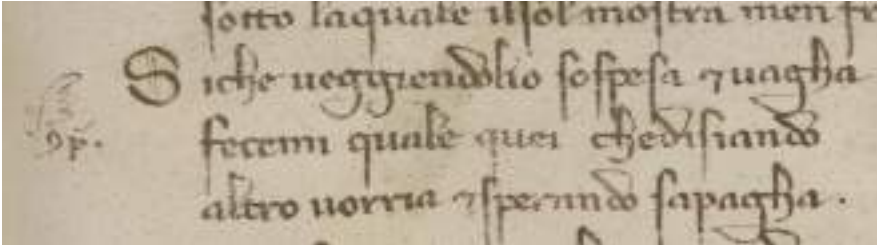 sotto laquale ilsol mostra men fr
Siche ueggiendolio sospesa ⁊ uagha
fecemi quale quei chedisiando
altro uorria ⁊sperando sapagha .